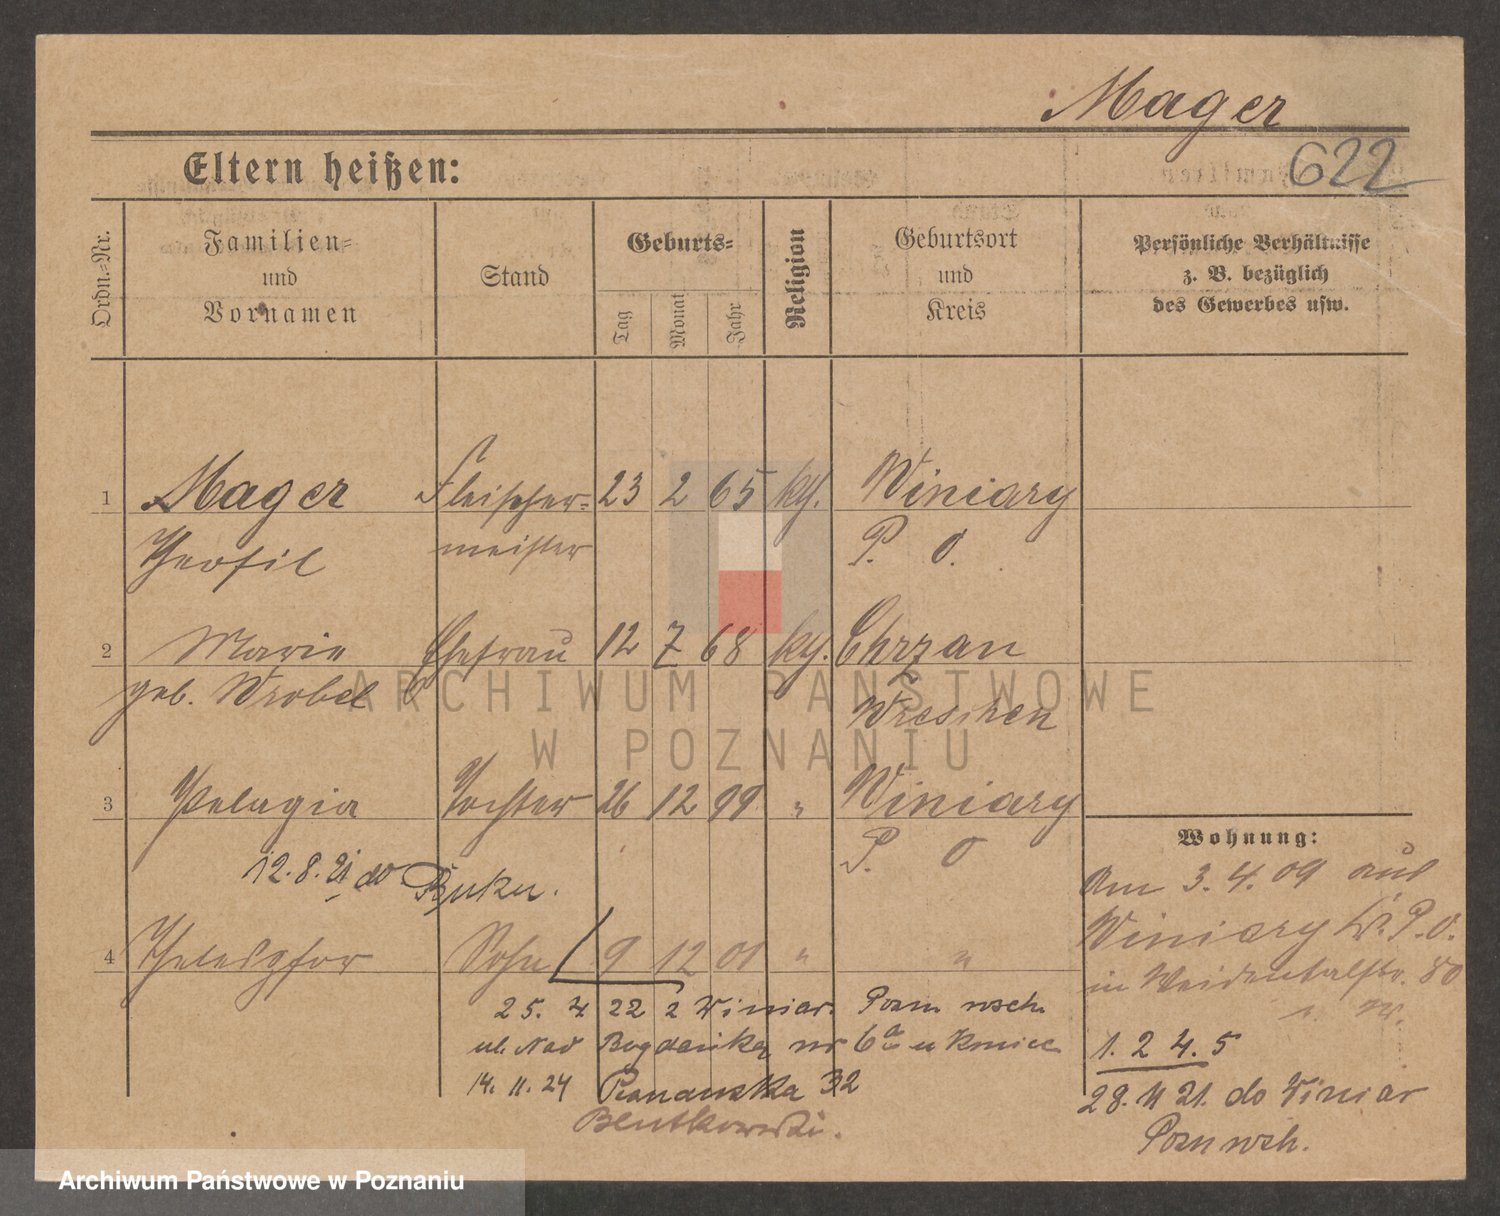 Mager
622
Eltern heißen:
Ordn.-Nr.
Familien-
und
Vornamen
Stand
Geburts-
Tag
Monat
Jahr
Religion
Geburtsort
und
Kreis
Persönliche Verhältnisse
z. B. bezüglich
des Gewerbes usw.
1 Mager Fleischer- 23 2 65 kth. Winiary
Theofil meister P. O.
2 Marie Ehefrau 12 7 68 kth. Chrzan
geb. Wrobel Wreschen
3 Pelagia Tochter 26 12 99 " Winiary
P. O
12.8.21 do Buku.
4 Thelesphor Sohn 9 12 01 " "
25. 4 22 z Winiar. Pozn wsch.
ul. Nad Bogdanką nr 6a u
14. 11. 24 Poznańska 32
Bentkowski.
Wohnung:
Am 3. 4. 09 aus
Winiary Kr. P. O.
in Weidenthalstr. 80
1. 2 4. 5
28. 11 21. do Winiar
Pozn wsch.
Archiwum Państwowe w Poznaniu
ARCHIWUM PAŃSTWOWE
W POZNANIU